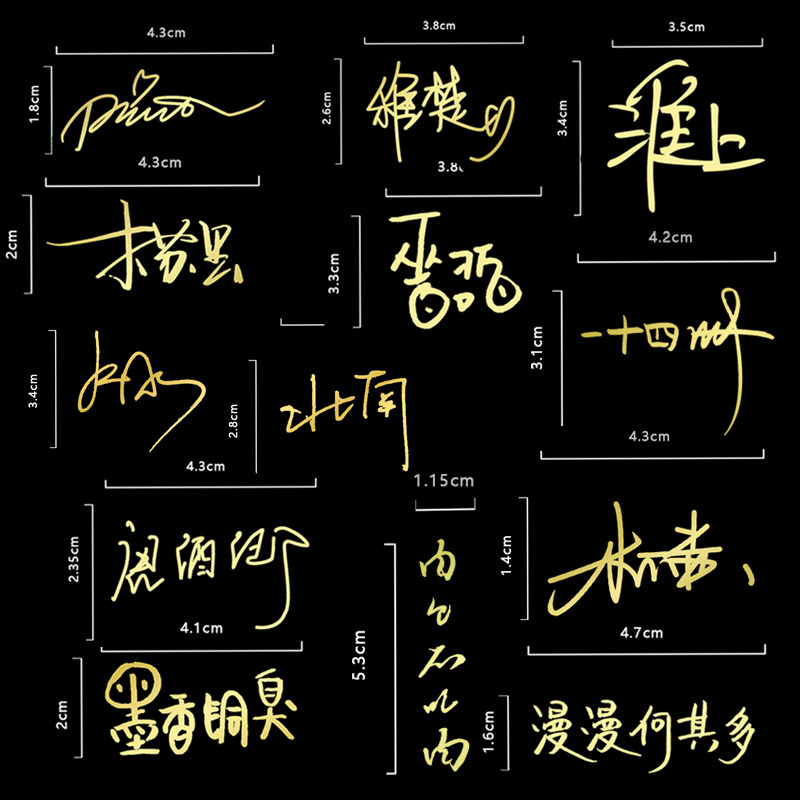 4.3cm
1.8cm
Priest
3.8cm
2.6cm
稚楚
3.5cm
3.4cm
淮上
4.3cm
2cm
木苏里
3.8
3.3cm
巫哲
4.2cm
3.1cm
一十四洲
3.4cm
2.8cm
北南
4.3cm
2.35cm
唐酒卿
1.15cm
5.3cm
肉
包
不
吃
肉
4.3cm
1.4cm
水千丞
4.1cm
2cm
墨香铜臭
4.7cm
1.6cm
漫漫何其多